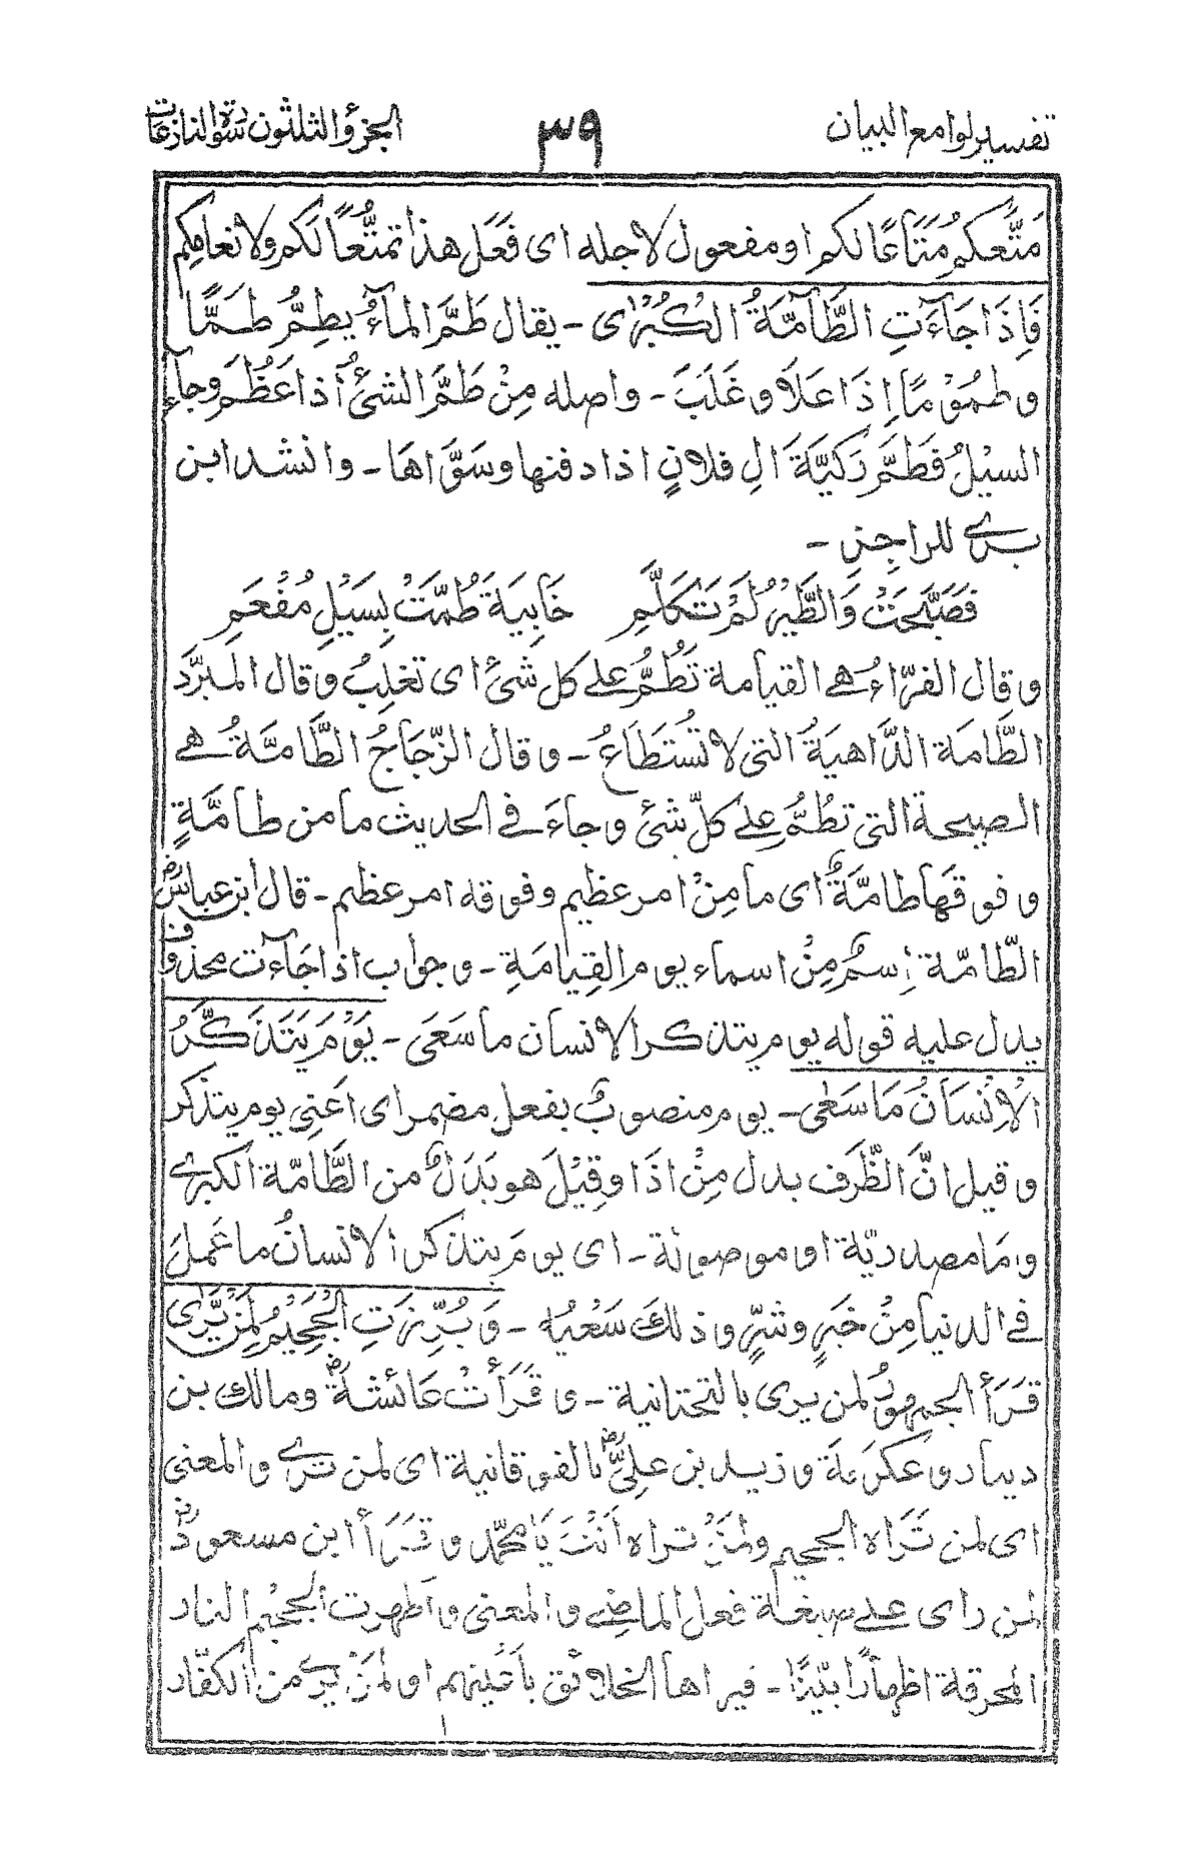 تفسير لوامع البيان ٣٩ الجزؤ الثلثون سورة والنازعات
مَتَّعكم مُتَاعًا لكم او مفعول لاجله اى فَعَل هذا تمتُّعًا لَكم ولانعامِكم
فَاِذَا جَآءَتِ الطَّآمَّةُ الكُبْرٰى - يقال طَمَّ المآءُ يطِمُّ طَمًّا
وطُمُوْمًا اِذَا عَلَا و غَلَبَ - واصله مِنْ طَمَّ الشئُ اذا عَظُمَ وجآء
السيْلُ فَطَمَّ رَكيَّةَ الِ فلانٍ اذا دفنها وسَوَّاهَا - وانشد ابن
برى للراجِزِ -
فَصَبَّحَتْ وَالطَّيْرُ لَمْ تَكَلَّمِ خَابِيَةَ طُمَّتْ بِسَيْلٍ مُفْعَمِ
وقال الفرّاءُ هى القيامة تَطُمُّ على كل شئ اى تغلِبُ وقال المبرَّد
الطَّامَة الدَّاهيَةُ التى لا تُستطَاعُ - وقال الزّجَاجُ الطَّامَّةُ هى
الصيحة التى تَطُمُّ على كلّ شئ وجاءَ فى الحديث ما من طامَّةٍ
وفوقَها طامَّةٌ اى ما مِنْ امر عظيم وفوقه امر عظيم - قال ابن عباسؓ
الطّامّة اِسمٌ مِنْ اسماء يوم القِيامَةِ - وجواب اذا جَآءت محذوف
يدل عليه قوله يوم يتذكر الانسان ما سَعَى - يَوْمَ يَتَذَكَّرُ
الْاِنْسَانُ مَا سَعٰى - يوم منصوبٌ بفعل مضمر اى اَعنِى يوم يتذكر
وقيل انَّ الظّرف بدل مِنْ اذَا وقِيْلَ هو بَدَلٌ من الطَّامّة الكبرى
ومَا مصدريّة او موصولة - اى يومَ يتذكر الانسانُ ما عَمِلَ
فى الدنيا مِنْ خَيرٍ وشرٍّ وذلكَ سَعْيُهُ - وَبُرِّزَتِ الْجَحِيْمُ لِمَنْ يَّرٰى
قَرَأَ الجمهورُ لمن يرى بالتحتانية - وقَرَأتْ عَائشةؓ ومالك بن
دينار وعكرمَة وزيد بن علىؓ بالفوقانية اى لمن ترى والمعنى
اى لمن تَرَاه الجحيم ولمَنْ تراه اَنْتَ يَا محمّد وقَرَأ ابن مسعودؓ
لمن راى على صيغة فعل الماضى والمعنى واَظهرت الجحيْم النار
المحرقة اظهارًا بيّنًا - فيراها الخلائق باَعْيُنهم او لمَنْ يرى من الكفّار